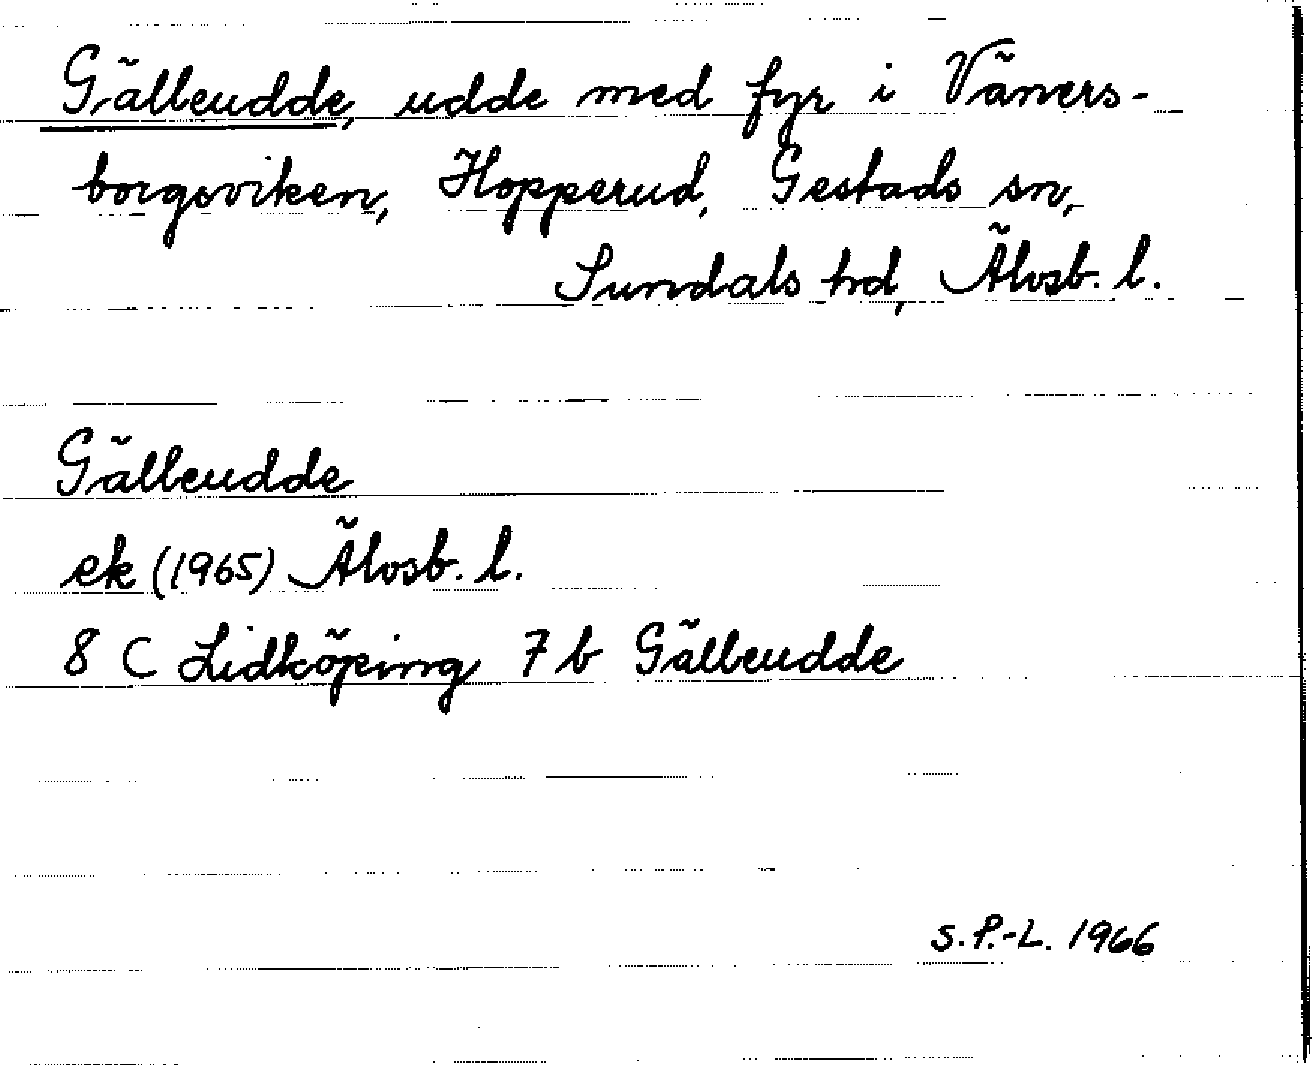 Gälleudde, udde med fyr i Väners-
borgsviken, Hopperud, Gestads sn,
Sundals hd, Älvsb. l.
Gälleudde
ek (1965) Älvsb. l.
8 C Lidköping 7 b Gälleudde
S.P.-L. 1966